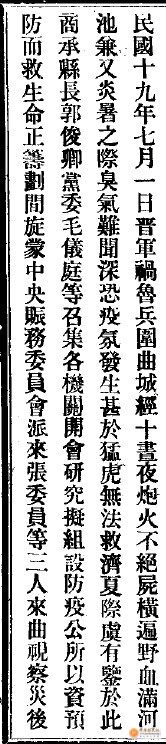 民國十九年七月一日晉軍禍魯兵圍曲城經十晝夜炮火不絕屍橫遍野血滿河
池兼又炎暑之際臭氣難聞深恐疫氛發生甚於猛虎無法救濟夏際虞有鑒於此
商承縣長郭俊卿黨委毛儀庭等召集各機關開會研究擬組設防疫公所以資預
防而救生命正籌劃間旋蒙中央賑務委員會派來張委員等三人來曲視察災後